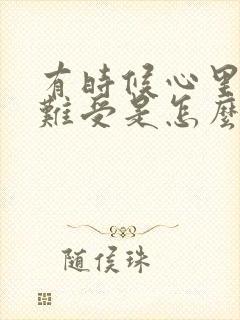 有時候心里
難受是怎麼
随侯珠